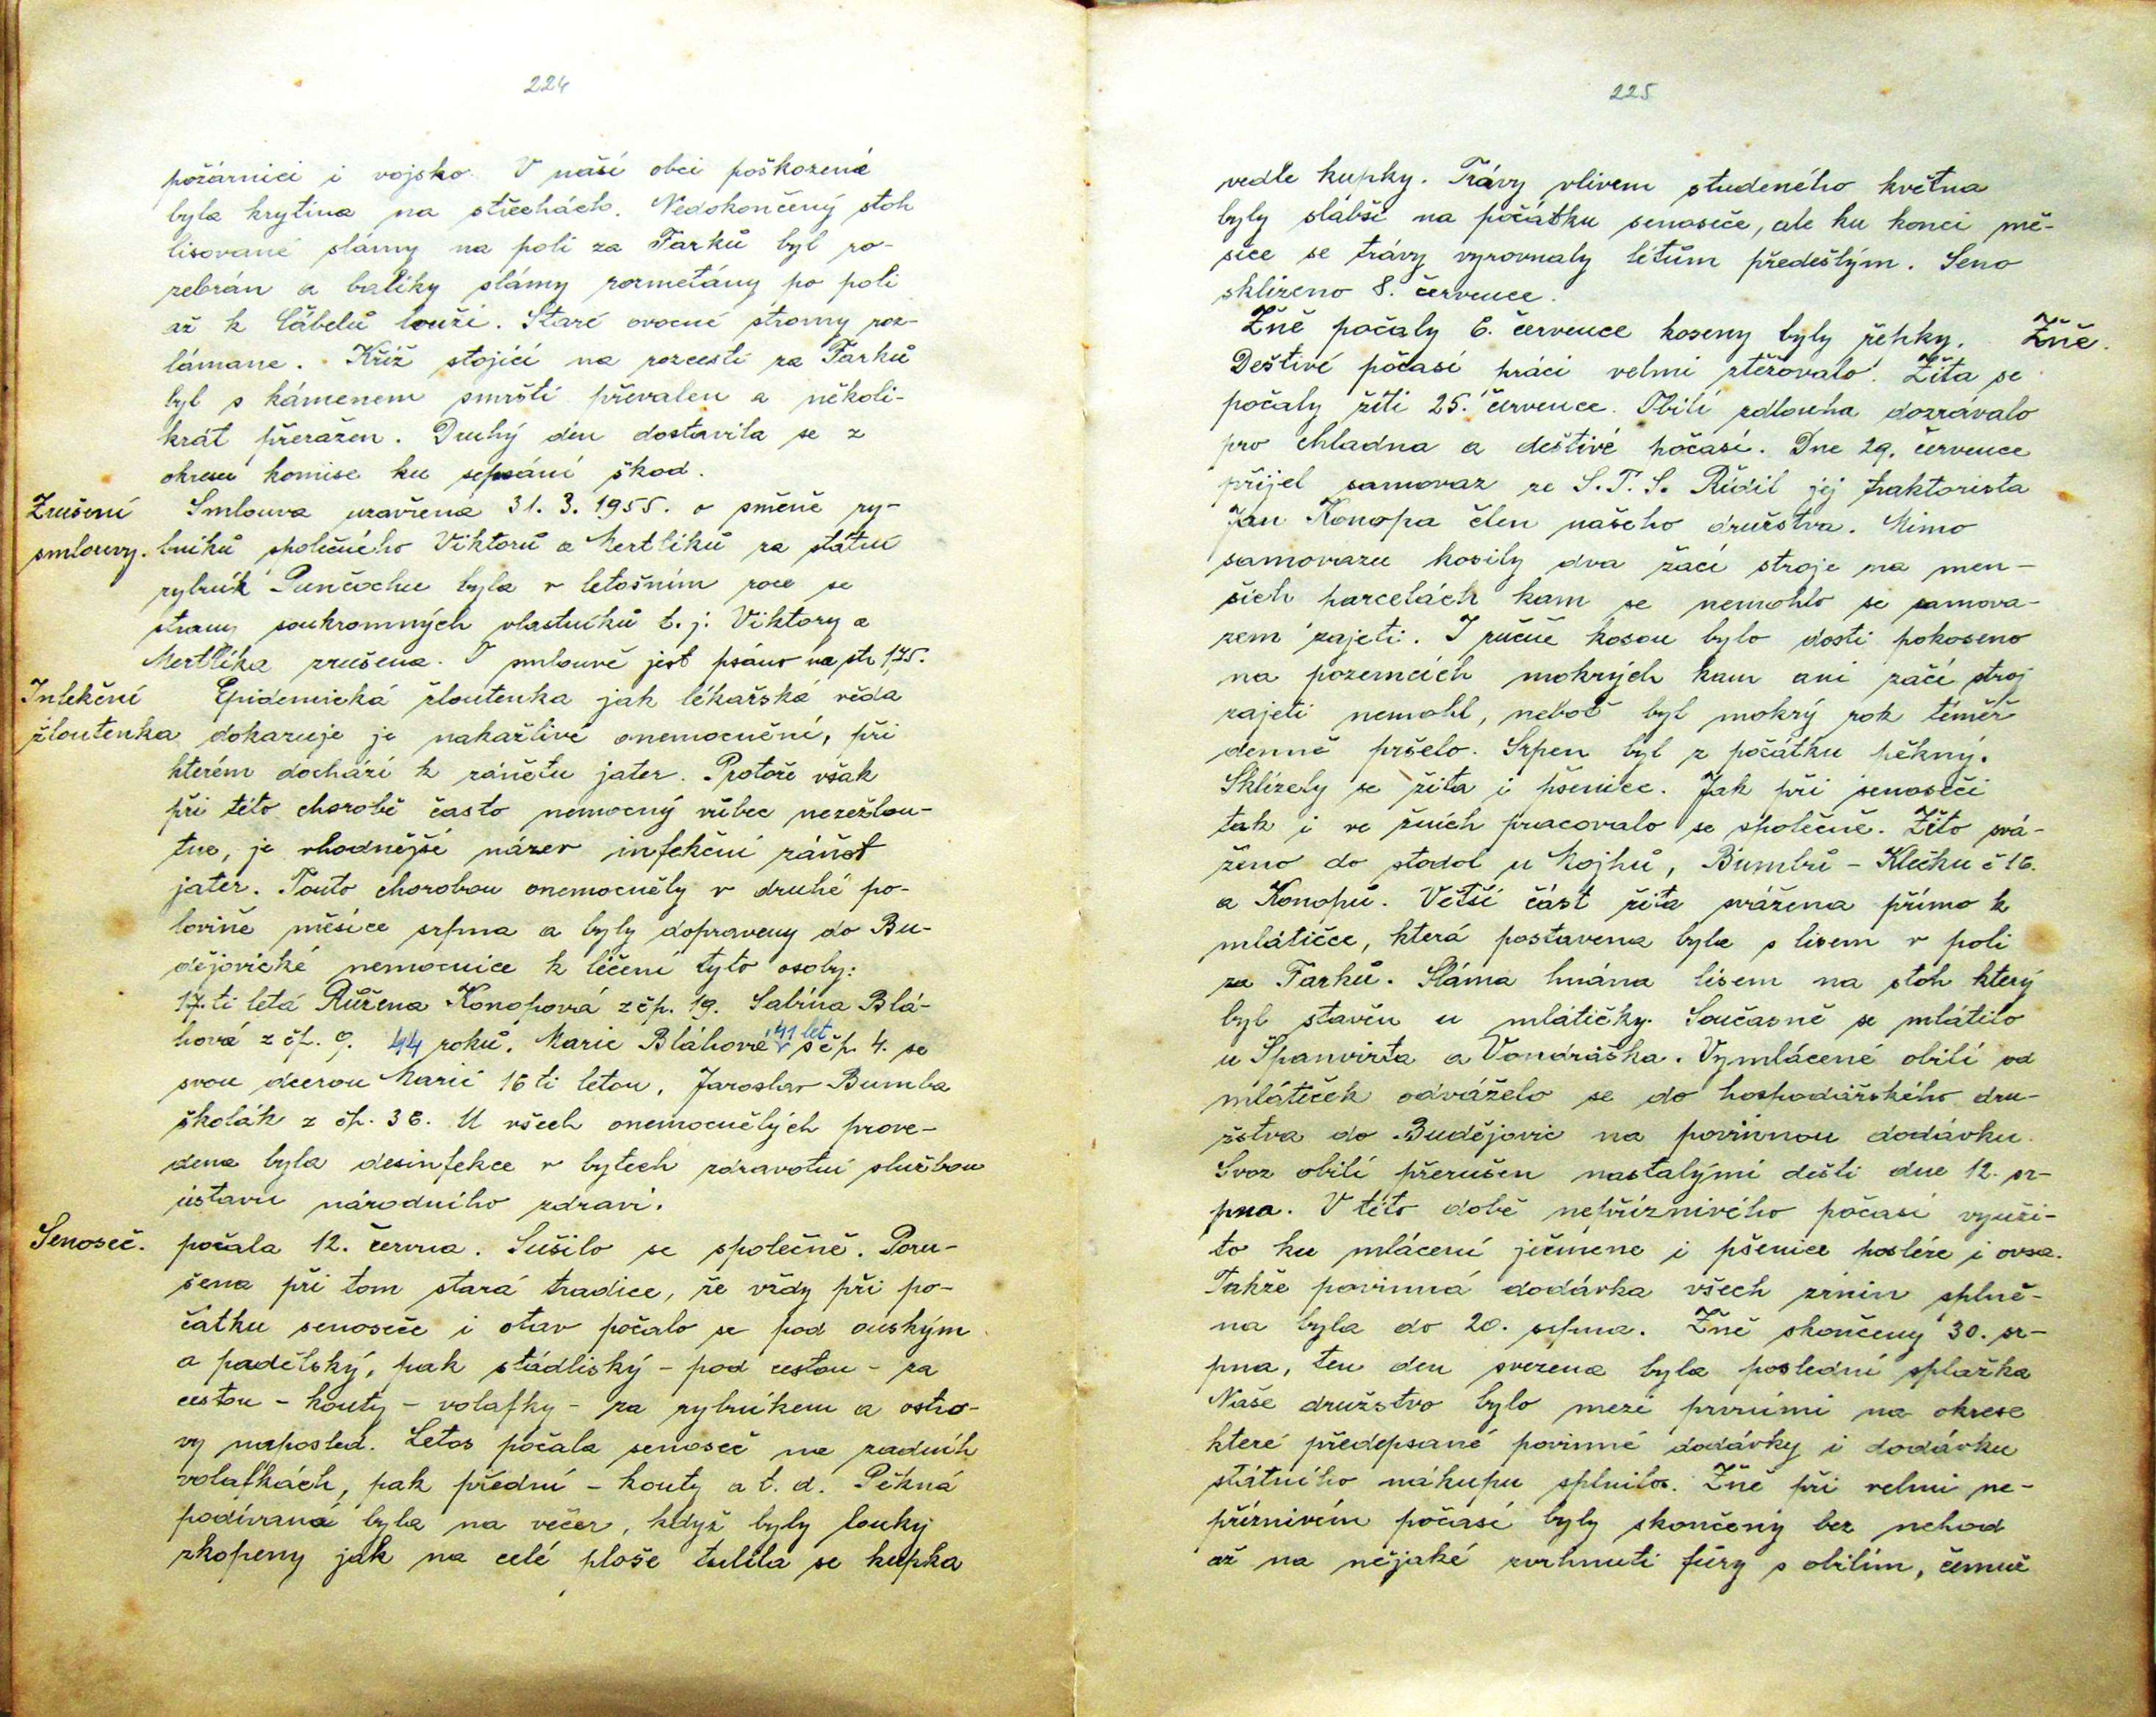 224
požárnici i vojsko. V naší obci poškozená
byla krytina na střechách. Nedokončený stoh
lisované slámy na poli za Farků byl ro-
zebrán a balíky slámy rozmetány po poli
až k Čábelů louži. Staré ovocné stromy roz-
lámane. Kříž stojící na rozcestí za Farků
byl s kámenem smrští převalen a několi-
krát přeražen. Druhý den dostavila se z
okresu komise ku sepsání škod.
Zrušení
smlouvy.
Smlouva uzavřena 31. 3. 1955. o směně ry-
bníků společného Viktorů a Mertlíků za státní
rybník Punčochu byla v letošním roce se
strany soukromných vlastníků t. j. Viktory a
Mertlíka zrušena. O smlouvě jest psáno na str 175.
Infekční
žloutenka
Epidemická žloutenka jak lékařská věda
dokazuje je nakažlivé onemocnění, při
kterém dochází k zánětu jater. Protože však
při této chorobě často nemocný vůbec nezežlou-
tne, je vhodnější název infekční zánět
jater. Touto chorobou onemocněly v druhé po-
lovině měsíce srpna a byly dopraveny do Bu-
dějovické nemocnice k léčení tyto osoby:
17.ti letá Růžena Konopová z čp. 19. Sabina Blá-
hová z čp. 9. 44 roků. Marie Bláhová 41 let s čp. 4. se
svou dcerou Marií 16 ti letou, Jaroslav Bumba
školák z čp. 36. U všech onemocnělých prove-
dena byla desinfekce v bytech zdravotní službou
ústavu národního zdraví.
Senoseč.
počala 12. června. Sušilo se společně. Poru-
šena při tom stará tradice, že vždy při po-
čátku senoseče i otav počalo se pod ouským
a padělský, pak stádliský - pod cestou - za
cestou - kouty - volafky - za rybníkem a ostro-
vy naposled. Letos počala senoseč na zadních
volafkách, pak přední - kouty a t. d. Pěkná
podívaná byla na večer, když byly louky
zkopeny jak na celé ploše tulila se kupka
225
vedle kupky. Trávy vlivem studeného května
byly slabší na počátku senoseče, ale ku konci mě-
síce se trávy vyrovnaly létům předešlým. Seno
sklizeno 8. července.
Žně počaly 6. července koseny byly řepky.
Žně.
Deštivé počasí práci velmi ztěžovalo. Žita se
počaly žíti 25. července. Obilí zdlouha dozrávalo
pro chladna a deštivé počasí. Dne 29. července
přijel samovaz ze S.T.S. Řídil jej traktorista
Jan Konopa člen našeho družstva. Mimo
samovazu kosily dva žací stroje na men-
ších parcelách kam se nemohlo se samova-
zem zajeti. I ručně kosou bylo dosti pokoseno
na pozemcích mokrých kam ani žací stroj
zajeti nemohl, neboť byl mokrý rok téměř
denně pršelo. Srpen byl z počátku pěkný.
Sklízely se žita i pšenice. Jak při senoseči
tak i ve žních pracovalo se společně. Žito svá-
ženo do stodol u Kojhů, Bumbů - Klečku č 16.
a Konopů. Větší část žita svážena přímo k
mlátičce, která postavena byla s lisem v poli
za Farků. Sláma hnána lisem na stoh který
byl stavěn u mlátičky. Současně se mlátilo
u Španvirta a Vondráška. Vymlácené obilí od
mlátiček odváželo se do hospodářského dru-
žstva do Budějovic na povinnou dodávku.
Svoz obilí přerušen nastalými dešti dne 12. sr-
pna. V této době nepříznivého počasí využi-
to ku mlácení ječmene i pšenice posléze i ovsa.
Takže povinná dodávka všech zrnin splně-
na byla do 20. srpna. Žně skončeny 30. sr-
pna, ten den svezena byla poslední splažka
Naše družstvo bylo mezi prvními na okrese
které předepsané povinné dodávky i dodávku
státního nákupu splnilo. Žně při velmi ne-
příznivém počasí byly skončeny bez nehod
až na nějaké zvrhnutí fůry s obilím, čemuž